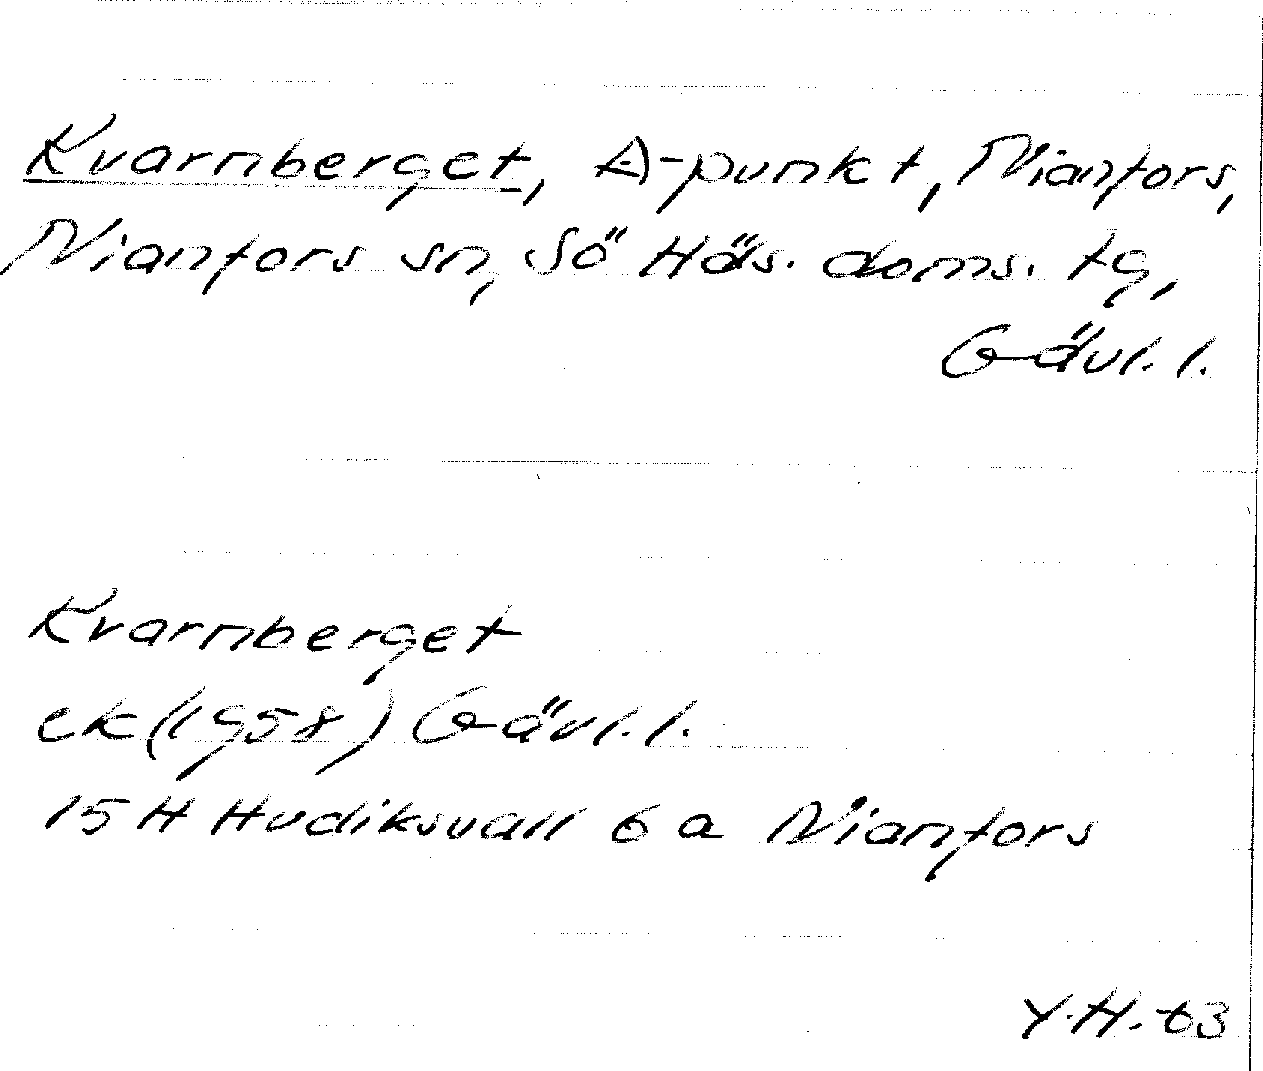 Kvarnberget, A-punkt, Nianfors,
Nianfors sn, Sö Häs. doms. tg,
Gävl. l.
Kvarnberget
ek (1958) Gävl. l.
15 H Hudiksvall 6 a Nianfors
Y.H.-63